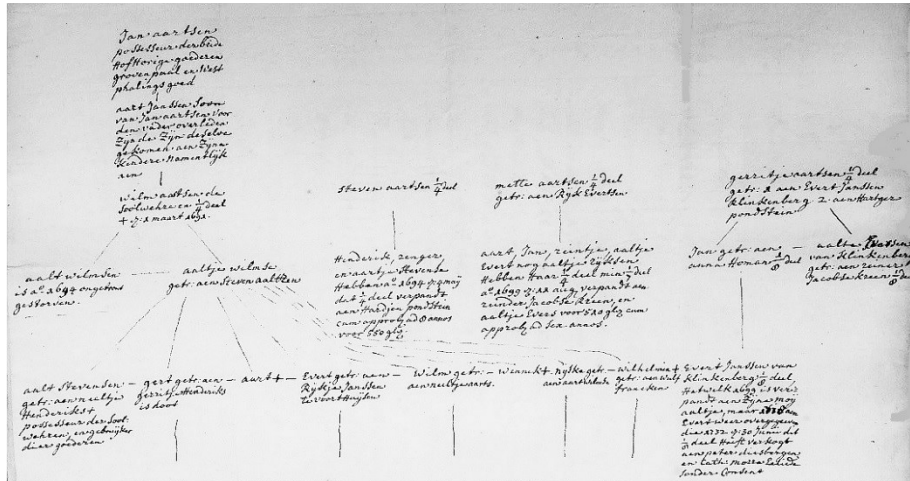 Jan aartsen
possesseur der beide
Hofhorige goederen
grovenpaul en West
phalings goed
aart Janssen Soon
van Jan aartsen voor
den vader overleden
Zijnde Zijn deselve
gekomen aen Zijne
kindere namentlijk
aen
wilm aartsen de
Soolwehre en 1/4 deel
+ 7: 1 maart 1691.
steven aartsen 1/4 deel
mette aartsen 1/4 deel
getr: aen Rijk Evertsen
gerritje aartsen 1/4 deel
getr: 1 aen Evert Janssen
Klinkenberg 2 aen Hartger
pondstein
aalt wilmsen
is aº 1694 ongetrout
gestorven.
aaltje wilmse
getr: aen Steven aaltzen
Henderick, renger
en aartje Stevense
Hebben aº 1694
dit 1/4 deel verpandt
aen Hardjen pondstein
cum approb: ad 8 annos
voor 550 gl:
aart Jan reintje, aaltje
Evert nog aaltje Rijksen
Hebben Haar 1/4 deel min deel
aº 1693 verpandt aen
reinder Jacobse Kreen, en
aaltje Evers voor 510 gl:
cum approb: ad sex annos.
Jan getr: aen
anna Homan 1/8 deel
aalte Evertsen
van Klinkenberg
getr: aen reiner
Jacobse Kreen 1/8
aalt Stevensen
getr: aen neeltje
Henderiks +
possesseur der Sool:
wehren, en gebruijker
dier goederen
gert getr: aen
gerritje Henderiks
is doot
aart +
Evert getr: aen
Rijkje Janssen
te voorthuijsen
Wilm getr:
aen neeltje aarts.
weinuk +
nijske getr:
aen aart
wilhelmin +
getr: aen wulf
francken
Evert Janssen van
Klinkenberg 1/8 deel,
Hetwelk 1699 is verz
pandt aen Zijne moij
aaltje, maar aen
Evert weer overgegeven
die 1732 7: 30 Junij dit
1/8 deel Heeft verkogt
aen peter diesbergen
en Cath: morre Eelude
sonder Consent